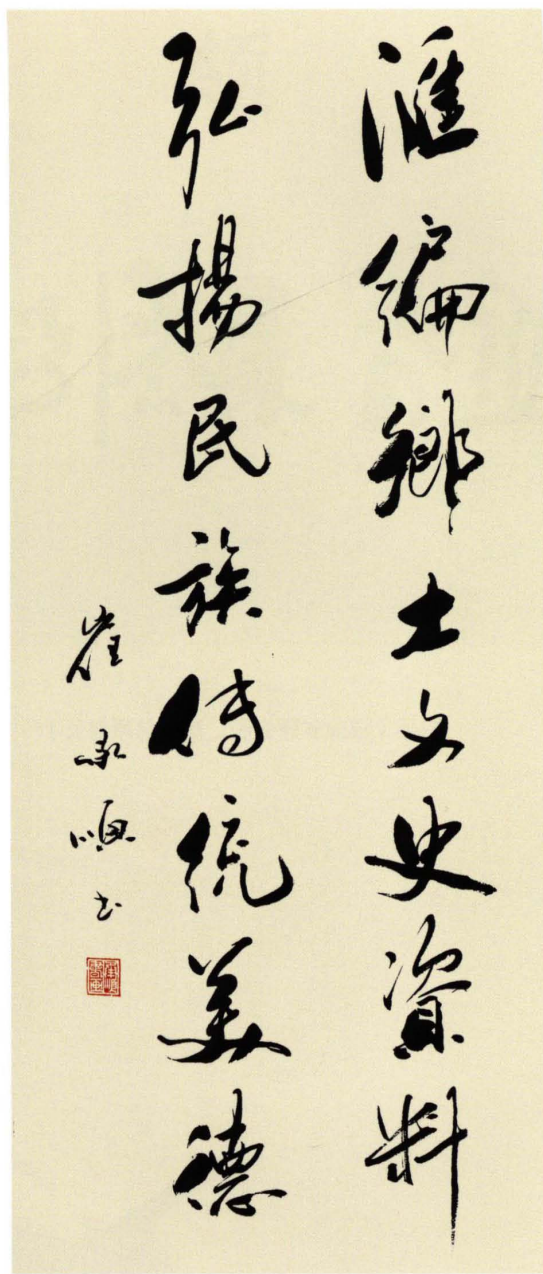 滙編鄉土文史資料
弘揚民族傳統美德
崔永順書